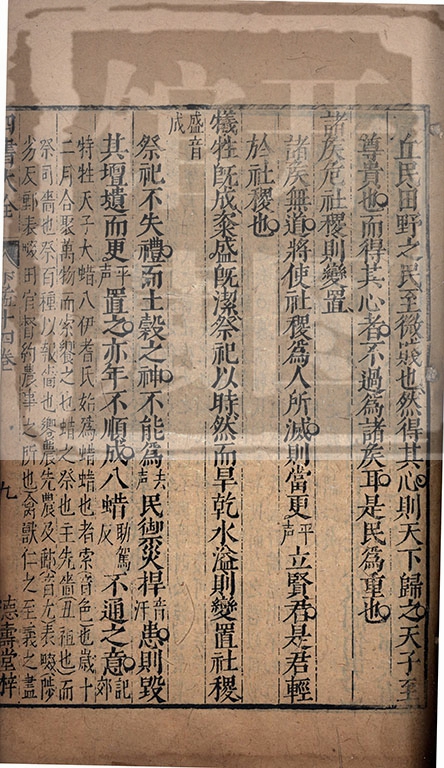 丘民田野之民至微賤也然得其心則天下歸之天子至
尊貴也而得其心者不過為諸侯耳是民為重也
諸侯危社稷則變置
諸侯無道將使社稷為人所滅則當更平聲立賢君是君輕
於社稷也
犧牲既成粢盛既潔祭祀以時然而旱乾水溢則變置社稷
盛音成
祭祀不失禮而土穀之神不能為去聲民禦災捍音汗患則毀
其壇壝而更平聲置之亦年不順成八蜡助駕反不通之意記郊
特牲天子大蜡八伊耆氏始為蜡蜡也者索音色也歲十
二月合聚萬物而索饗之也蜡之祭也主先嗇丑祖也而
祭司嗇也祭百種以報嗇也饗農先農及郵音尤表畷陟
劣反郵表畷田官督約農事之所也禽獸仁之至義之盡
四書大全
十四卷
九
德壽堂梓